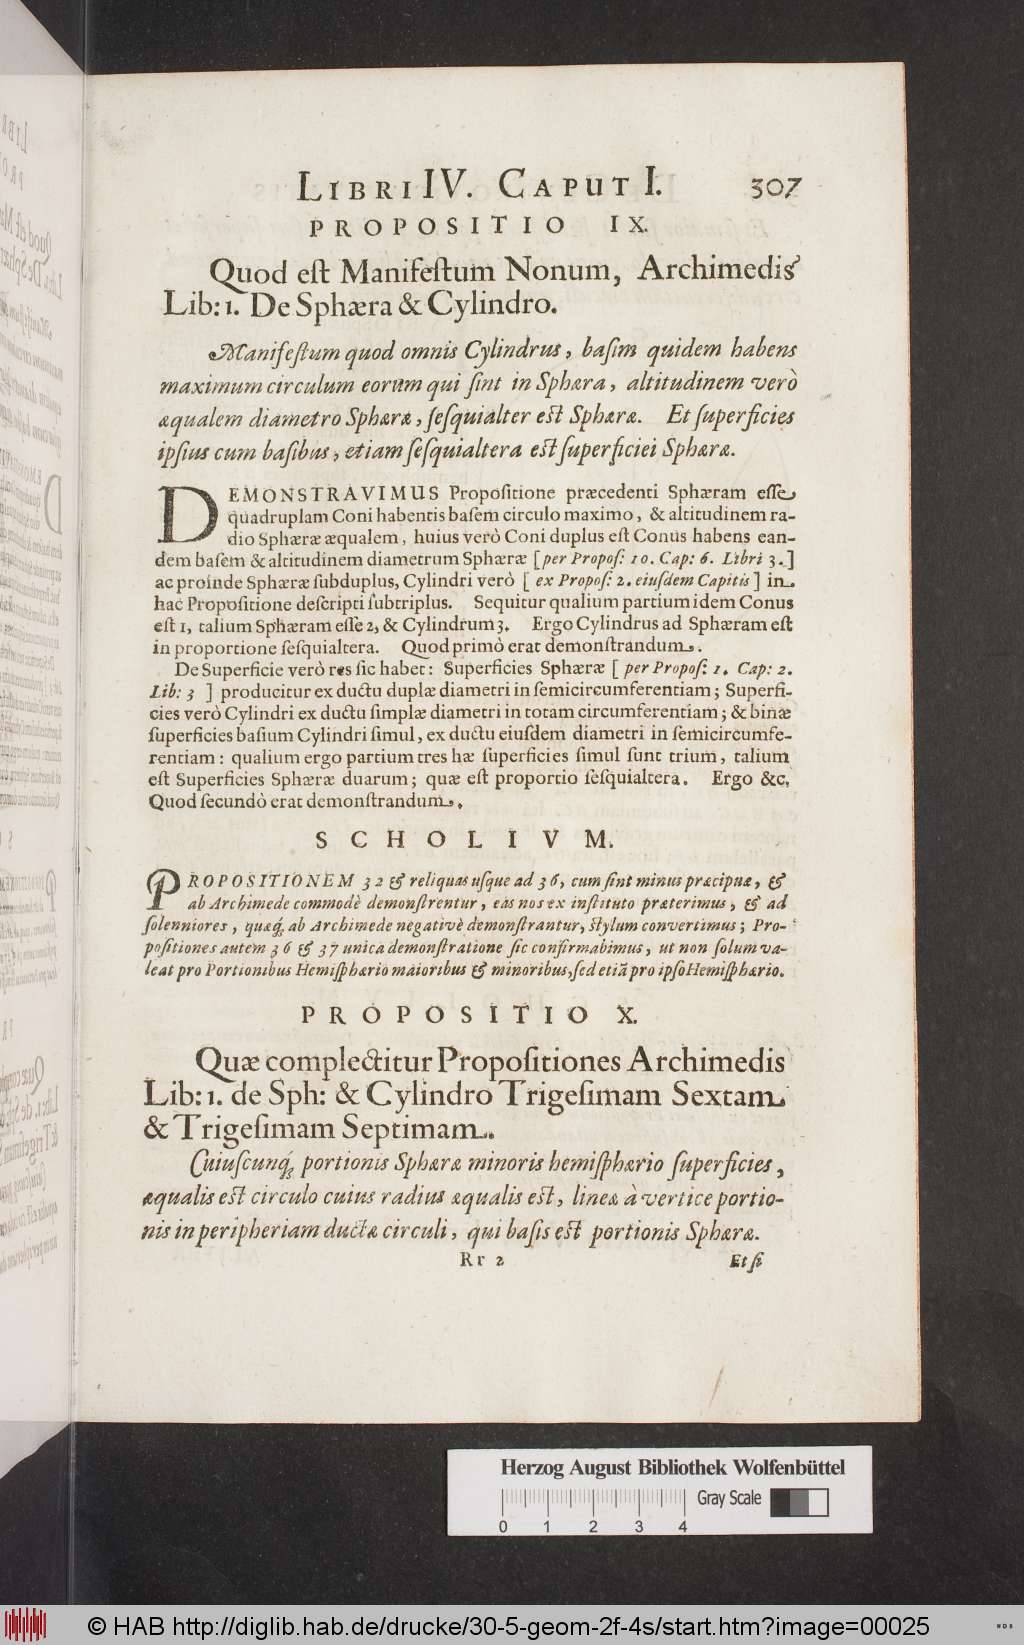 LIBRI IV. CAPUT I. 307
PROPOSITIO IX.
Quod est Manifestum Nonum, Archimedis
Lib: 1. De Sphæra & Cylindro.
Manifestum quod omnis Cylindrus, basim quidem habens
maximum circulum eorum qui sint in Sphæra, altitudinem verò
æqualem diametro Sphæræ, sesquialter est Sphæræ. Et superficies
ipsius cum basibus, etiam sesquialtera est superficiei Sphæræ.
DEMONSTRAVIMUS Propositione præcedenti Sphæram esse
quadruplam Coni habentis basem circulo maximo, & altitudinem ra-
dio Sphæræ æqualem, huius verò Coni duplus est Conus habens ean-
dem basem & altitudinem diametrum Sphæræ [per Propos: 10. Cap: 6. Libri 3.]
ac proinde Sphæræ subduplus, Cylindri verò [ ex Propos: 2. eiusdem Capitis] in
hac Propositione descripti subtriplus. Sequitur qualium partium idem Conus
est 1, talium Sphæram esse 2, & Cylindrum 3. Ergo Cylindrus ad Sphæram est
in proportione sesquialtera. Quod primò erat demonstrandum.
De Superficie verò res sic habet: Superficies Sphæræ [ per Propos: 1. Cap: 2.
Lib: 3 ] producitur ex ductu duplæ diametri in semicircumferentiam; Superfi-
cies verò Cylindri ex ductu simplæ diametri in totam circumferentiam; & binæ
superficies basium Cylindri simul, ex ductu eiusdem diametri in semicircumfe-
rentiam: qualium ergo partium tres hæ superficies simul sunt trium, talium
est Superficies Sphæræ duarum; quæ est proportio sesquialtera. Ergo &c.
Quod secundò erat demonstrandum.
SCHOLIVM.
PROPOSITIONEM 32 & reliquas usque ad 36, cum sint minus præcipuæ, &
ab Archimede commodè demonstrentur, eas nos ex instituto præterimus, & ad
solenniores, quæq; ab Archimede negativè demonstrantur, stylum convertimus; Pro-
positiones autem 36 & 37 unica demonstratione sic confirmabimus, ut non solum va-
leat pro Portionibus Hemisphærio maioribus & minoribus, sed etiã pro ipso Hemisphærio.
PROPOSITIO X.
Quæ complectitur Propositiones Archimedis
Lib: 1. de Sph: & Cylindro Trigesimam Sextam
& Trigesimam Septimam.
Cuiuscunq; portionis Sphæræ minoris hemisphærio superficies,
æqualis est circulo cuius radius æqualis est, lineæ à vertice portio-
nis in peripheriam ductæ circuli, qui basis est portionis Sphæræ.
Rr 2 Et si
Herzog August Bibliothek Wolfenbüttel
Gray Scale
0 1 2 3 4
© HAB http://diglib.hab.de/drucke/30-5-geom-2f-4s/start.htm?image=00025